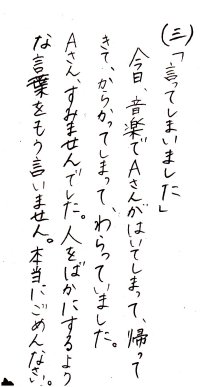 (三)「言ってしまいました」
今日、音楽でAさんがはいてしまって、帰って
きて、からかってしまって、わらっていました。
Aさん、すみませんでした。人をばかにするよう
な言葉をもう言いません。本当にごめんなさい。